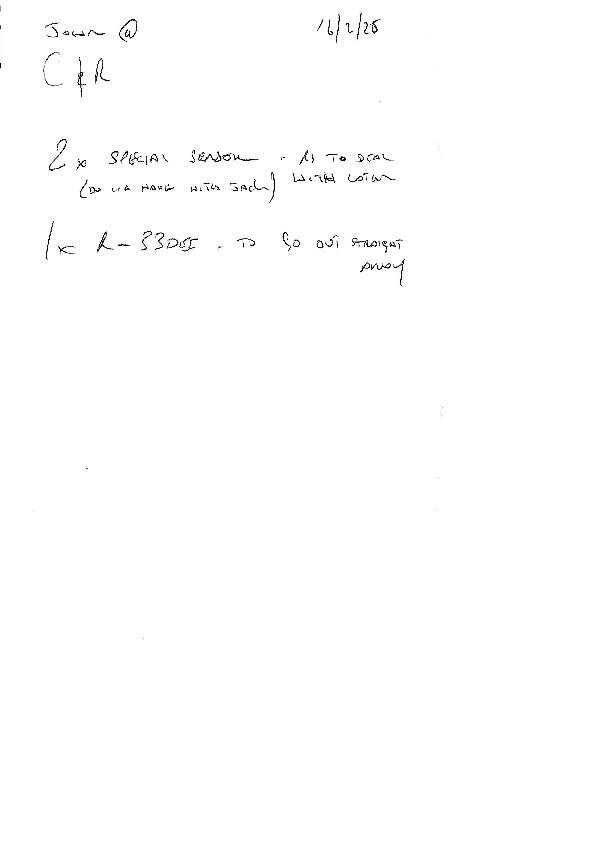 John @ 16/2/26
C & R
2 x SPECIAL SENSOR - RS TO DEAL
(DO WE HAVE WITH JACK) WITH LATER
1 x R-33DE - TO GO OUT STRAIGHT
AWAY